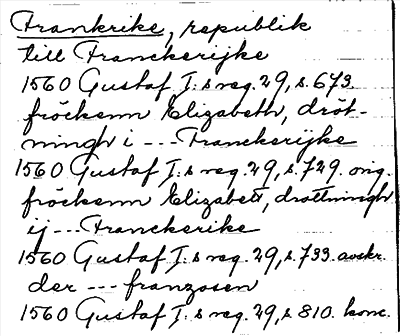 Frankrike, republik
till Franckerijke
1560 Gustaf I:s reg. 29, s. 673.
fröckenn Elizabeth, drót-
ningh i --- Franckerijke
1560 Gustaf I:s reg. 29, s. 729. orig.
fröckenn Elizabett, drottningh
ij --- Franckerike
1560 Gustaf I:s reg. 29, s. 733. avskr.
der --- franzosen
1560 Gustaf I:s reg. 29, s 810. konc.